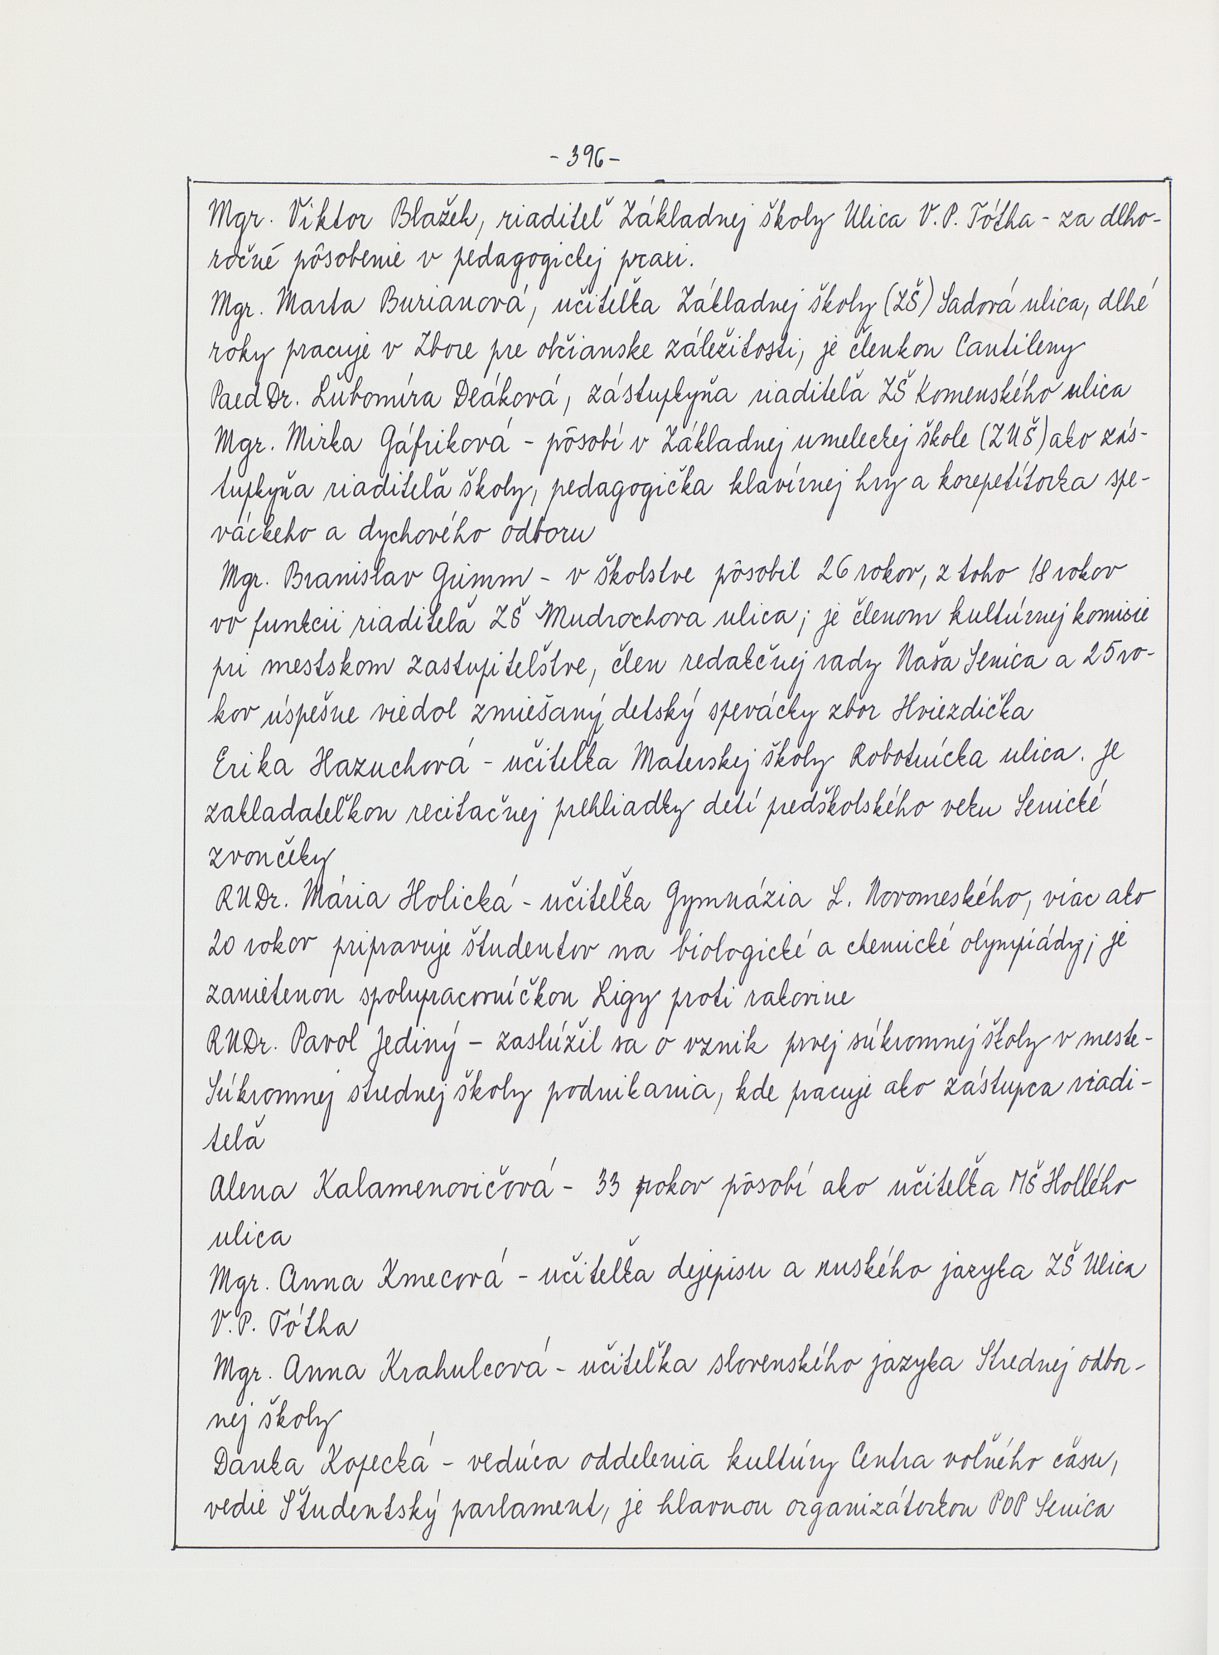 - 396 -
Mgr. Viktor Blažek, riaditeľ Základnej školy Ulica V. P. Tótha - za dlho-
ročné pôsobenie v pedagogickej praxi.
Mgr. Marta Burianová, učiteľka Základnej školy (ZŠ) Sadová ulica, dlhé
roky pracuje v Zbore pre občianske záležitosti, je členkou Cantileny
PaedDr. Ľubomíra Deáková, zástupkyňa riaditeľa ZŠ Komenského ulica
Mgr. Mirka Gáfriková - pôsobí v Základnej umeleckej škole (ZUŠ) ako zás-
tupkyňa riaditeľa školy, pedagogička klavírnej hry a korepetítorka spe-
váckeho a dychového odboru
Mgr. Branislav Grimm - v školstve pôsobil 26 rokov, z toho 18 rokov
vo funkcii riaditeľa ZŠ Mudrochova ulica; je členom kultúrnej komisie
pri mestskom zastupiteľstve, člen redakčnej rady Naša Senica a 25 ro-
kov úspešne viedol zmiešaný detský spevácky zbor Hviezdička
Erika Hazuchová - učiteľka Materskej školy Robotnícka ulica. Je
zakladateľkou recitačnej prehliadky detí predškolského veku Senické
zvončeky
RNDr. Mária Holická - učiteľka Gymnázia L. Novomeského, viac ako
20 rokov pripravuje študentov na biologické a chemické olympiády; je
zanietenou spolupracovníčkou Ligy proti rakovine
RNDr. Pavol Jediný - zaslúžil sa o vznik prvej súkromnej školy v meste -
Súkromnej strednej školy podnikania, kde pracuje ako zástupca riadi-
teľa
Alena Kalamenovičová - 33 rokov pôsobí ako učiteľka MŠ Hollého
ulica
Mgr. Anna Kmecová - učiteľka dejepisu a ruského jazyka ZŠ Ulica
V. P. Tótha
Mgr. Anna Krahulcová - učiteľka slovenského jazyka Strednej odbor-
nej školy
Danka Kopecká - vedúca oddelenia kultúry Centra voľného času,
vedie Študentský parlament, je hlavnou organizátorkou POP Senica